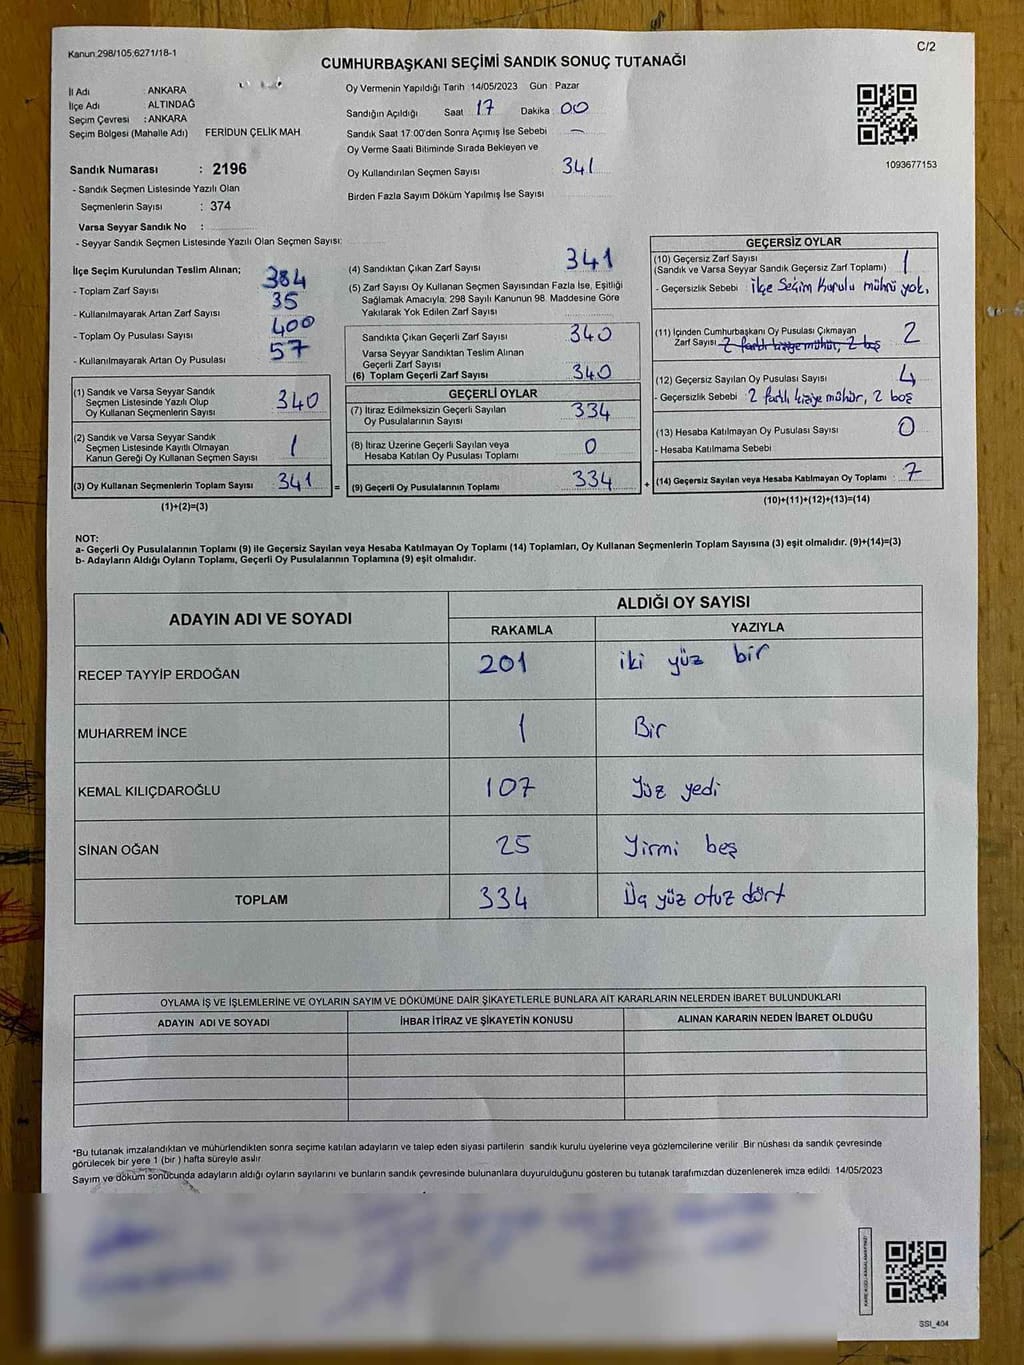 Kanun:298/105;6271/18-1
C/2
CUMHURBAŞKANI SEÇİMİ SANDIK SONUÇ TUTANAĞI
İl Adı : ANKARA
İlçe Adı : ALTINDAĞ
Seçim Çevresi : ANKARA
Seçim Bölgesi (Mahalle Adı) FERİDUN ÇELİK MAH
Sandık Numarası : 2196
- Sandık Seçmen Listesinde Yazılı Olan
Seçmenlerin Sayısı : 374
Varsa Seyyar Sandık No :
- Seyyar Sandık Seçmen Listesinde Yazılı Olan Seçmen Sayısı:
Oy Vermenin Yapıldığı Tarih 14/05/2023 Gün Pazar
Sandığın Açıldığı Saat 17 Dakika 00
Sandık Saat 17:00'den Sonra Açımış İse Sebebi —
Oy Verme Saati Bitiminde Sırada Bekleyen ve
Oy Kullandırılan Seçmen Sayısı 341
Birden Fazla Sayım Döküm Yapılmış İse Sayısı
1093677153
İlçe Seçim Kurulundan Teslim Alınan;
- Toplam Zarf Sayısı 384
- Kullanılmayarak Artan Zarf Sayısı 35
- Toplam Oy Pusulası Sayısı 400
- Kullanılmayarak Artan Oy Pusulası 57
(1) Sandık ve Varsa Seyyar Sandık
Seçmen Listesinde Yazılı Olup
Oy Kullanan Seçmenlerin Sayısı 340
(2) Sandık ve Varsa Seyyar Sandık
Seçmen Listesinde Kayıtlı Olmayan
Kanun Gereği Oy Kullanan Seçmen Sayısı 1
(3) Oy Kullanan Seçmenlerin Toplam Sayısı 341 =
(1)+(2)=(3)
(4) Sandıktan Çıkan Zarf Sayısı 341
(5) Zarf Sayısı Oy Kullanan Seçmen Sayısından Fazla İse, Eşitliği
Sağlamak Amacıyla; 298 Sayılı Kanunun 98. Maddesine Göre
Yakılarak Yok Edilen Zarf Sayısı
Sandıkta Çıkan Geçerli Zarf Sayısı 340
Varsa Seyyar Sandıktan Teslim Alınan
Geçerli Zarf Sayısı
(6) Toplam Geçerli Zarf Sayısı 340
GEÇERLİ OYLAR
(7) İtiraz Edilmeksizin Geçerli Sayılan
Oy Pusulalarının Sayısı 334
(8) İtiraz Üzerine Geçerli Sayılan veya
Hesaba Katılan Oy Pusulası Toplamı 0
(9) Geçerli Oy Pusulalarının Toplamı 334 +
GEÇERSİZ OYLAR
(10) Geçersiz Zarf Sayısı
(Sandık ve Varsa Seyyar Sandık Geçersiz Zarf Toplamı) 1
- Geçersizlik Sebebi İlçe Seçim Kurulu mührü yok.
(11) İçinden Cumhurbaşkanı Oy Pusulası Çıkmayan
Zarf Sayısı 2 farklı kişiye mühür, 2 boş 2
(12) Geçersiz Sayılan Oy Pusulası Sayısı 4
- Geçersizlik Sebebi 2 farklı kişiye mühür, 2 boş
(13) Hesaba Katılmayan Oy Pusulası Sayısı 0
- Hesaba Katılmama Sebebi
(14) Geçersiz Sayılan veya Hesaba Katılmayan Oy Toplamı : 7
(10)+(11)+(12)+(13)=(14)
NOT:
a- Geçerli Oy Pusulalarının Toplamı (9) ile Geçersiz Sayılan veya Hesaba Katılmayan Oy Toplamı (14) Toplamları, Oy Kullanan Seçmenlerin Toplam Sayısına (3) eşit olmalıdır. (9)+(14)=(3)
b- Adayların Aldığı Oyların Toplamı, Geçerli Oy Pusulalarının Toplamına (9) eşit olmalıdır.
ADAYIN ADI VE SOYADI
ALDIĞI OY SAYISI
RAKAMLA YAZIYLA
RECEP TAYYİP ERDOĞAN 201 iki yüz bir
MUHARREM İNCE 1 Bir
KEMAL KILIÇDAROĞLU 107 Yüz yedi
SİNAN OĞAN 25 Yirmi beş
TOPLAM 334 Üç yüz otuz dört
OYLAMA İŞ VE İŞLEMLERİNE VE OYLARIN SAYIM VE DÖKÜMÜNE DAİR ŞİKAYETLERLE BUNLARA AİT KARARLARIN NELERDEN İBARET BULUNDUKLARI
ADAYIN ADI VE SOYADI İHBAR İTİRAZ VE ŞİKAYETİN KONUSU ALINAN KARARIN NEDEN İBARET OLDUĞU
*Bu tutanak imzalandıktan ve mühürlendikten sonra seçime katılan adayların ve talep eden siyasi partilerin sandık kurulu üyelerine veya gözlemcilerine verilir. Bir nüshası da sandık çevresinde
görülecek bir yere 1 (bir) hafta süreyle asılır.
Sayım ve döküm sonucunda adayların aldığı oyların sayılarını ve bunların sandık çevresinde bulunanlara duyurulduğunu gösteren bu tutanak tarafımızdan düzenlenerek imza edildi. 14/05/2023
SSI_404